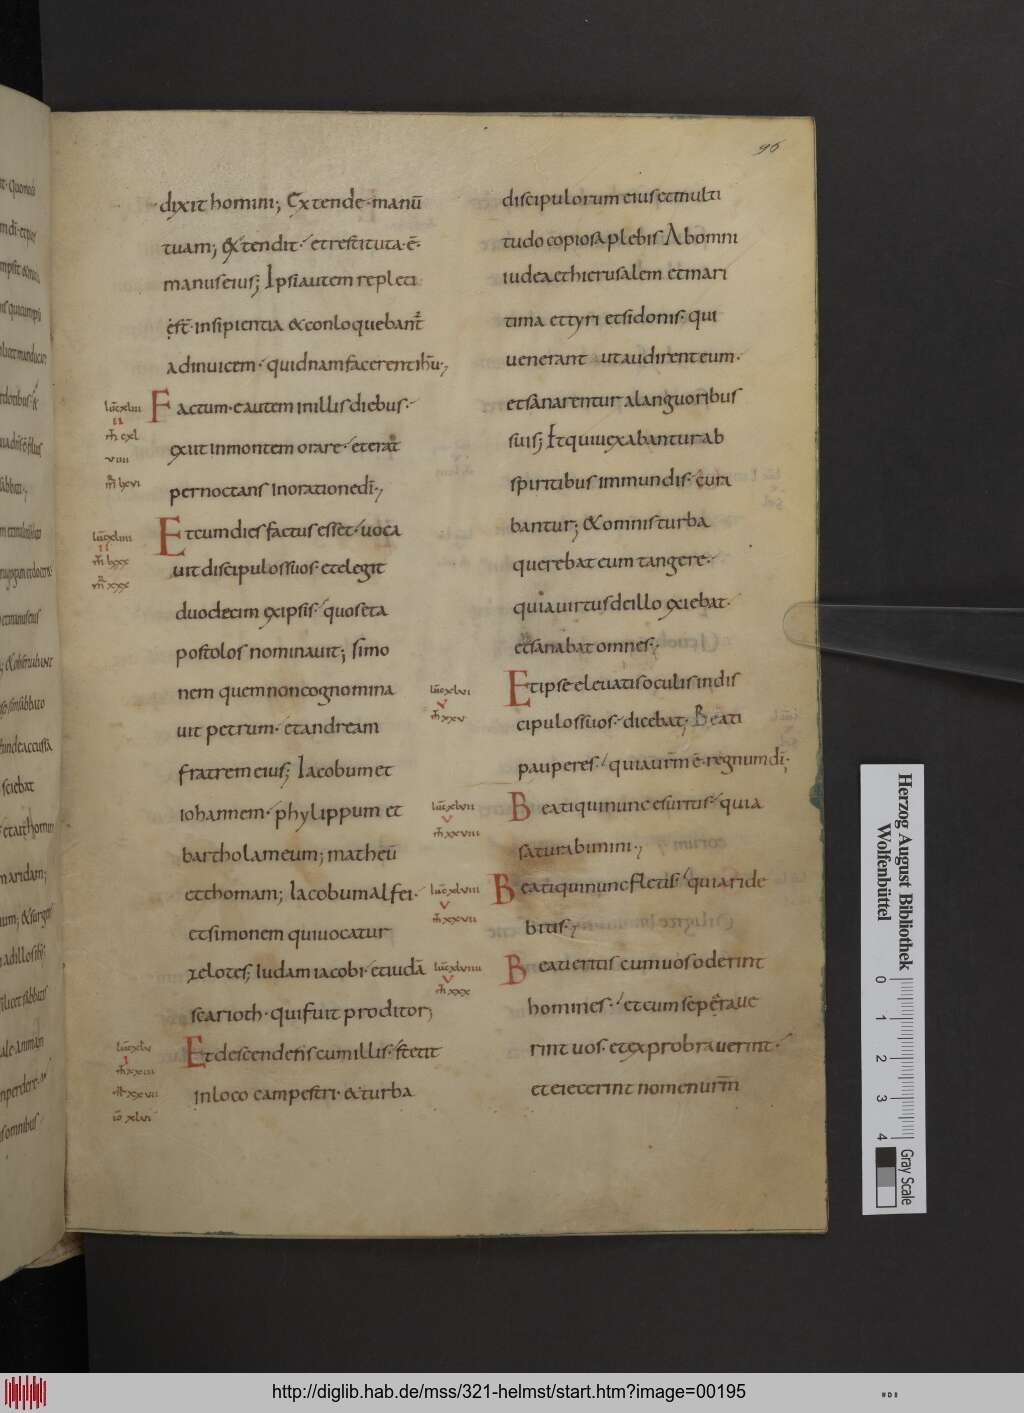 96
dixit homini; Extende manū
tuam; & tendit· et restituta ē·
manus eius; Ipsi autem repleti
ēst· insipientia & conloquebant̄
adinuicem· quidnam facerent ihū;
luc̄ xliii
Factum· e autem in illis diebus·
ii
m̄ cxl
exiit in montem orare· et erat
viii
m̄ lxvi
pernoctans in oratione dī;
luc̄ xliiii
Et cum dies factus esset· uoca
ii
m̄ lxxx
uit discipulos suos· et elegit
m̄r xxx
duodecim ex ipsis· quos et a
postolos nominauit; simo
nem quem non cognomina
uit petrum· et andream
fratrem eius; Iacobum et
iohannem· phylippum et
bartholameum; matheū
et thomam; Iacobum alfei·
et simonem qui uocatur
zelotes; Iudam iacobi· et iudā
scarioth· qui fuit proditor;
luc̄ xlv
Et descendens cum illis· stetit
i
m̄ xxiii
m̄r xxvii
in loco campestri· & turba
iō xlvi
discipulorum eius et multi
tudo copiosa plebis Ab omni
iudea et hierusalem et mari
tima et tyri et sidonis· qui
uenerant ut audirent eum·
et sanarentur a languoribus
suis; Et qui uexabantur ab
spiritibus immundis· cura
bantur; & omnis turba
querebat eum tangere·
quia uirtus de illo exiebat·
et sanabat omnes;
luc̄ xlvi
Et ipse eleuatis oculis in dis
v
m̄ xxv
cipulos suos· dicebat; Beati
pauperes· quia ur̄m ē· regnum dī;
luc̄ xlvii
Beati qui nunc esuritis· quia
v
m̄ xxviii
saturabimini;
luc̄ xlviii
Beati qui nunc fletis· quia ride
v
m̄ xxvii
bitis;
luc̄ xlviiii
Beati eritis cum uos oderint
v
m̄ xxx
homines· et cum seperaue
rint uos· et exprobrauerint·
et eiecerint nomen ur̄m
Herzog August Bibliothek
Wolfenbüttel
0 1 2 3 4
Gray Scale
http://diglib.hab.de/mss/321-helmst/start.htm?image=00195